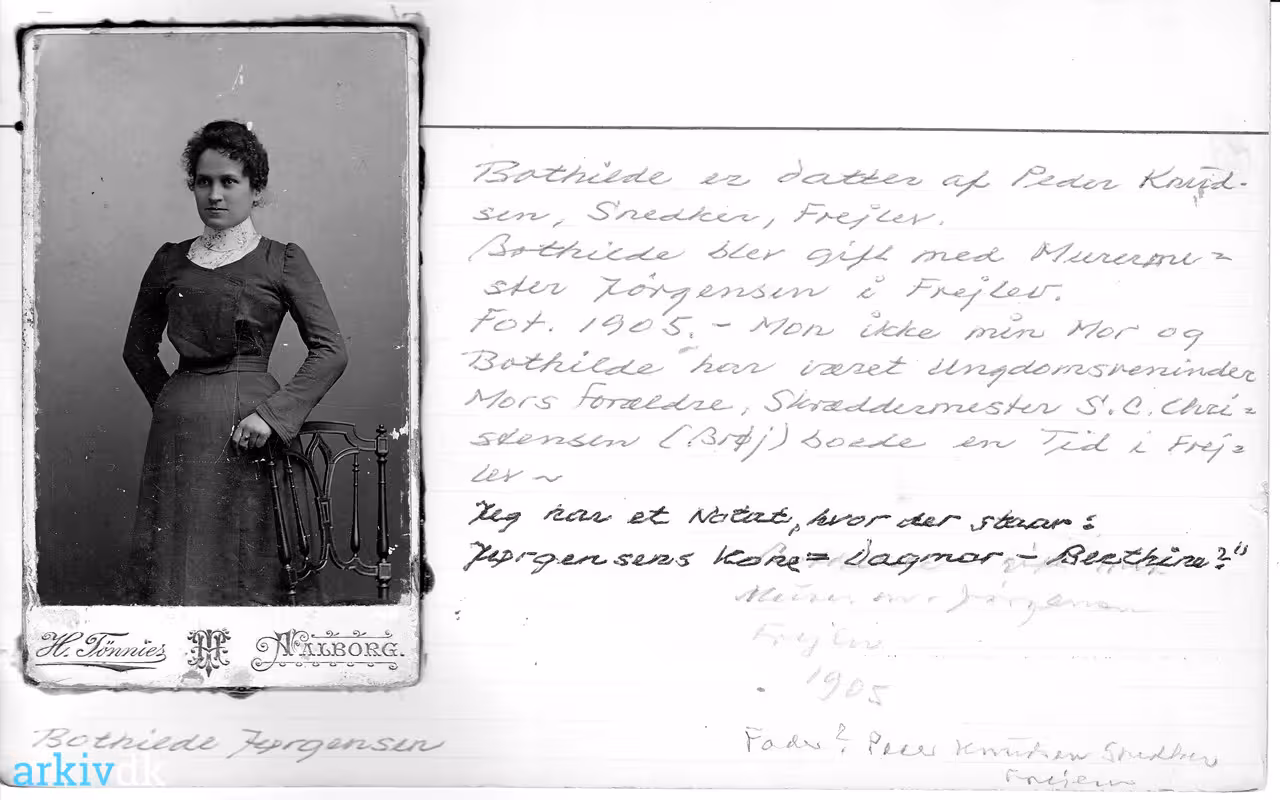 Bothilde er datter af Peder Knud-
sen, Snedker, Frejlev.
Bothilde blev gift med Murerme=
ster Jørgensen i Frejlev.
Fot. 1905. - Mon ikke min Mor og
Bothilde har været Ungdomsveninder
Mors Forældre, Skræddermester S. C. Chri=
stensen (Brøj) boede en Tid i Frej=
lev ~
Jeg har et Notat, hvor der staar:
Jørgensens Kone = Dagmar - Berthine?"
Jørgensen
Frejlev
1905
Fader? Peder Knudsen Snedker
Frejlev
H. Tönnies HT AALBORG.
Bothilde Jørgensen
arkivdk